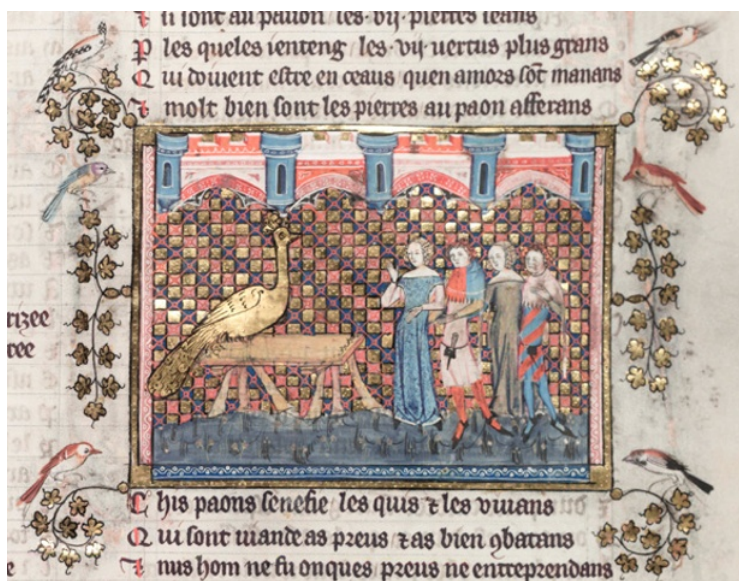 li sont au pauon les ·vij· pierres seans
P les queles ienteng les ·vij· uertus plus grans
Q ui doiuent estre en ceaus quen amors sōt manans
molt bien sont les pierres au paon afferans
rizee
ree
C his paons senefie les quis ⁊ les viuans
Q ui sont uiande as preus ⁊ as bien ꝯbatans
nus hom ne fu onques preus ne entreprendans